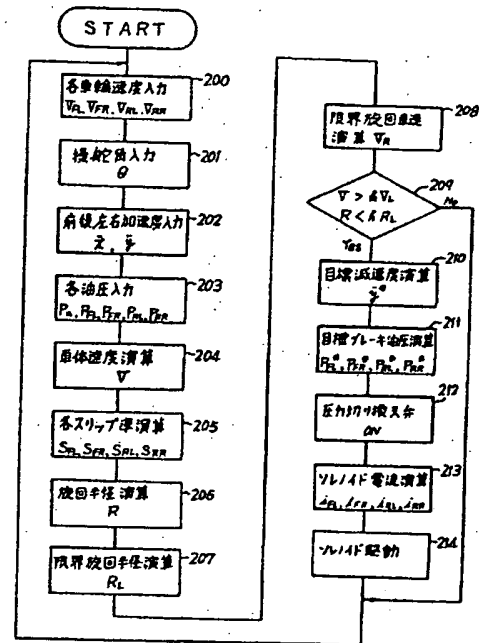 START
200
各車輪速度入力
V_FL, V_FR, V_RL, V_RR
201
操舵角入力
θ
202
前後左右加速度入力
ẍ, ÿ
203
各油圧入力
P_FL, P_FR, P_RL, P_RR
204
車体速度演算
V
205
各スリップ率演算
S_FL, S_FR, S_RL, S_RR
206
旋回半径演算
R
207
限界旋回半径演算
R_L
208
限界旋回車速
演算
209
R < k R_L
No
Yes
210
目標減速度演算
211
目標ブレーキ油圧演算
P_FL*, P_FR*, P_RL*, P_RR*
212
圧力切り換え弁
ON
213
ソレノイド電流演算
i_FL, i_FR, i_RL, i_RR
214
ソレノイド駆動